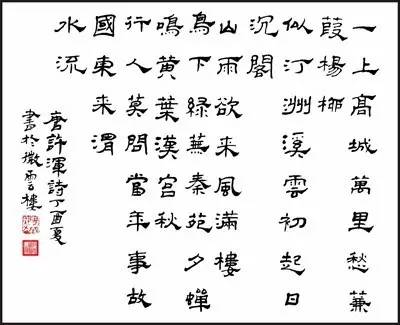 一上高城萬里愁蒹
葭楊柳
似汀洲溪雲初起日
沉閣
山雨欲來風滿樓
鳥下綠蕪秦苑夕蟬
鳴黃葉漢宮秋
行人莫問當年事故
國東來渭
水流
唐許渾詩丁酉夏
書於微雲樓